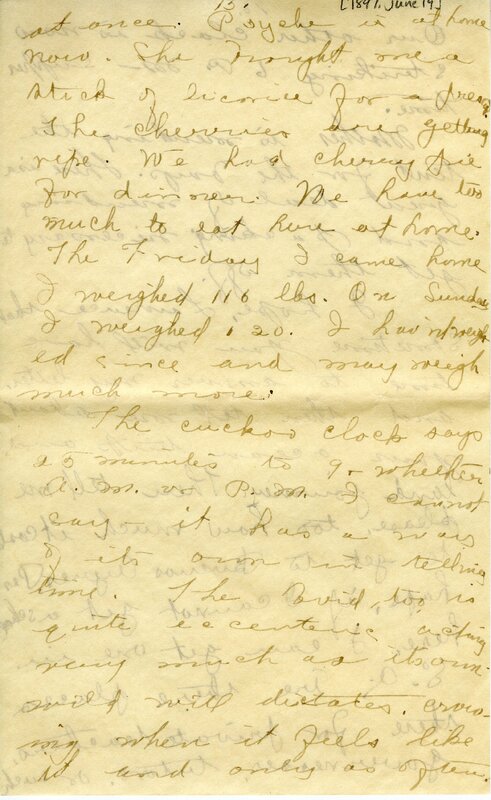 15.
[1897, June 19]
at once. Psyche is at home
now. She brought me a
stick of licorice for a treat.
The cherries are getting
ripe. We had cherry pie
for dinner. We have too
much to eat here at home.
The Friday I came home
I weighed 116 lbs. On Sunday
I weighed 120. I hav'nt weigh
ed since and may weigh
much more.
The cuckoo clock says
25 minutes to 9 - whether
A.M. or P.M. I cannot
say - it has a way
of its own in telling
time. The bird, too is
quite eccentric acting
very much as its own
wild will dictates, crow-
ing when it feels like
it and only as often